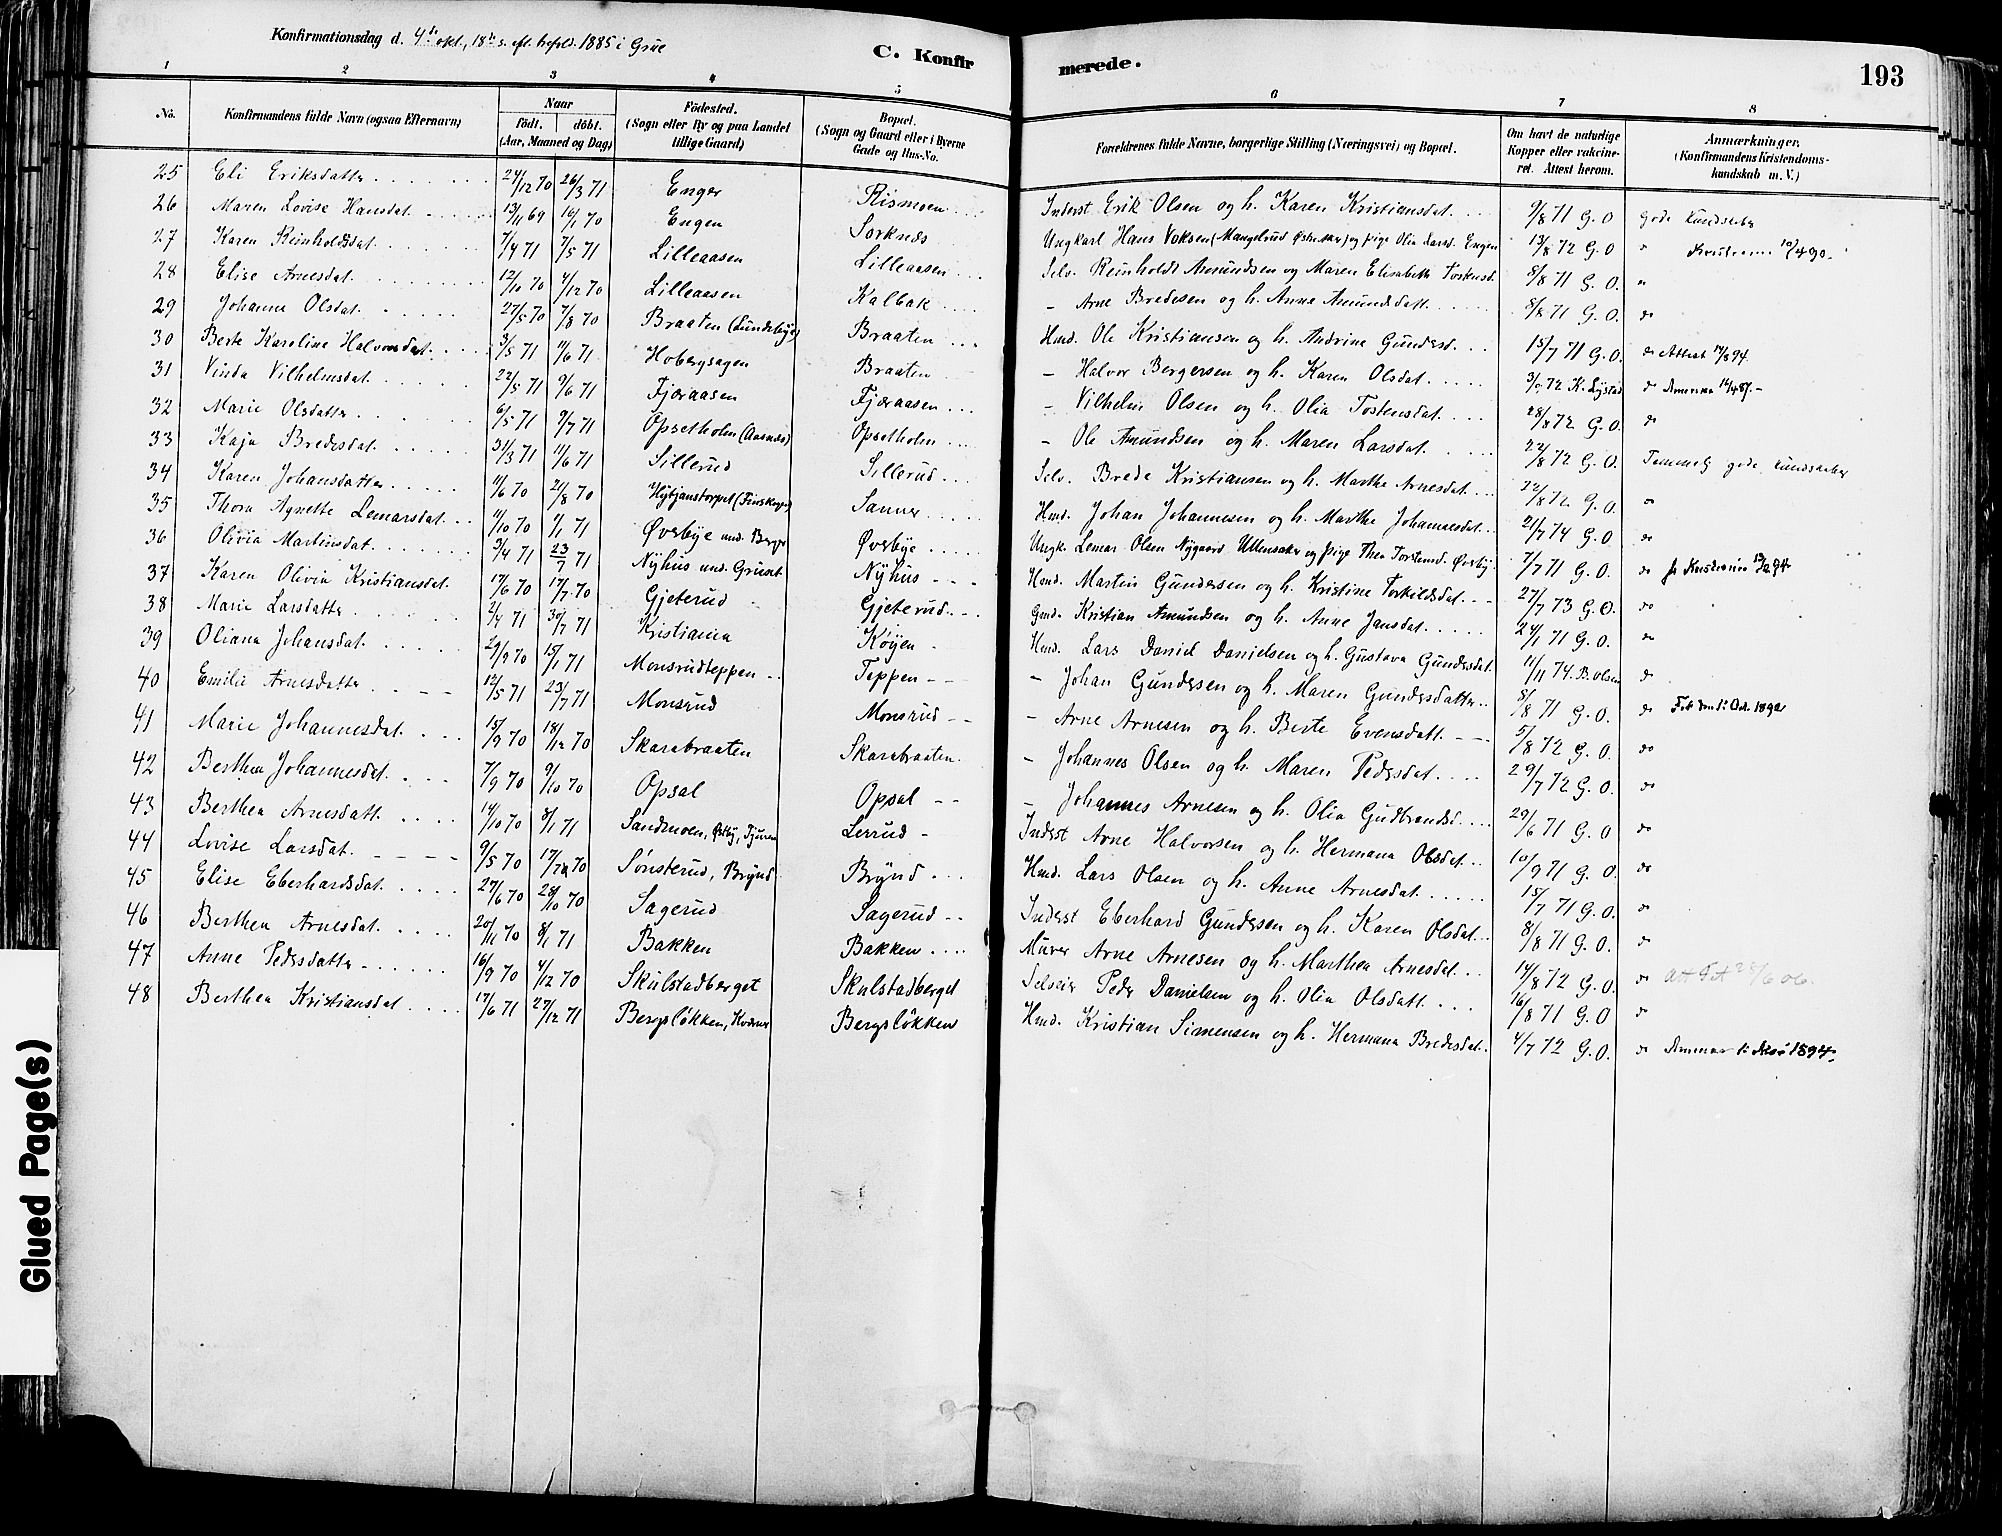 Konfirmationsdag d. 4de okt., 18de s. eft. trefold. 1885 i Grue
C. Konfirmerede.
193
1 2 3 4 5 6 7 8
No. Konfirmandens fulde Navn (ogsaa Efternavn) Naar födt. döbt. (Aar, Maaned og Dag) Födested. (Sogn eller By og paa Landet tillige Gaard) Bopæl. (Sogn og Gaard eller i Byerne Gade og Hus-No. Forældrenes fulde Navne, borgerlige Stilling (Næringsvei) og Bopæl. Om havt de naturlige Kopper eller vakcineret. Attest herom. Anmærkninger. (Konfirmandens Kristendomskundskab m. V.)
25 Eli Eriksdatter 24/12 70 26/3 71 Enger Rismoen Inderst Erik Olsen og h. Karen Kristiansdat. 9/8 71 G. O gode kundskaber
26 Maren Lovise Hansdat. 13/11 69 16/1 70 Engen Sorknes Ungkarl Hans Voksen (Mangelrud) og pige Olia Larsd. Engen 13/8 72 G. O " Kristiania 10/4 90.
27 Karen Reinholdsdat. 7/4 71 7/5 71 Lilleaasen Lilleaasen Selv. Reinholdt Amundsen og Maren Elisabeth Tostensd. 8/8 71 G. O. "
28 Elise Arnesdat. 12/10 70 4/12 70 Lilleaasen Kalbak - Arne Bredesen og h. Anne Amundsdatt. 8/8 71 G. O. do
29 Johanne Olsdat. 27/5 70 7/8 70 Braaten (Lundebye) Braaten Hmd. Ole Kristiansen og h. Andrine Gundersd. 15/7 71 G. O.
30 Berte Karoline Halvorsdat. 3/5 71 11/6 71 Hobergsagen Braaten - Halvor Bergersen og h. Karen Olsdat. 72 K. Lystad do
31 Vinda Vilhelmsdat. 22/5 71 9/6 71 Fjøraasen Fjøraasen - Vilhelm Olsen og h. Olia Tostensdat. 28/8 72 G. O. do
32 Marie Olsdatter 6/5 71 9/7 71 Opsetholm (Aasnes) Opsetholm - Ole Amundsen og h. Maren Larsdat. 22/8 72 G. O. Temmelig gode kundskaber
33 Kaja Bredesdat. 31/3 71 11/6 71 Sillerud Sillerud Selv. Brede Kristiansen og h. Marthe Arnesdat. 22/8 72 G. O. "
34 Karen Johansdatter 11/6 70 21/8 70 Sanner Hmd. Johan Johannesen og h. Marthe Johannesdat. 21/7 74 G. O do
35 Thora Agnette Lemarsdat. 11/10 70 1/1 71 Øverbye und. Berger Øverbye Ungk. Lemar Olsen Nygaard Ullensaker og pige Thea Torstensd. Øverby 7/7 71 G. O. do
36 Olivia Martinsdat. 3/4 71 23/7 71 Nyhus und. Gruset Nyhus Hmd. Martin Gundersen og h. Kristine Torkildsdat. 27/7 73 G. O. do
37 Karen Olivia Kristiansdat. 17/6 70 17/7 70 Gjeterud Gjeterud Gmd. Kristian Amundsen og h. Anne Jansdat. 24/1 71 G. O. do
38 Marie Larsdatter 2/4 71 30/7 71 Kristiania Køyen Hmd. Lars Daniel Danielsen og h. Gustava Gundersdat. 11/11 74. B. Olsen do
39 Oliana Johansdat. 29/9 70 15/1 71 Monsrudteppen Teppen - Johan Gundersen og h. Maren Gundersdatter 8/8 71 G. O. do
40 Emilie Arnesdatter 12/5 71 23/7 71 Monsrud Monsrud - Arne Arnesen og h. Berte Evensdatt. 5/8 72 G. O. do
41 Marie Johannesdat. 15/9 70 18/12 70 Skarabraaten Skarabraaten. - Johannes Olsen og h. Maren Pedersdat. 29/7 72 G. O. do
42 Berthea Johannesdat. 7/9 70 9/10 70 Opsal Opsal - Johannes Arnesen og h. Olia Gudbrandsd. 29/6 71 G. O do
43 Berthea Arnesdatt. 14/10 70 8/1 71 Sandmoen, Østby, Lerrud Inderst Arne Halvorsen og h. Hermana Olsdat. 10/9 71 G. O. do
44 Lovise Larsdat. 9/5 70 17/7 70 Sønsterud, Brynd Brynd Hmd. Lars Olsen og h. Anne Arnesdat. 15/7 71 G. O. do
45 Elise Eberhardsdat. 27/6 70 28/10 70 Sagerud Sagerud Inderst Eberhard Gundersen og h. Karen Olsdat. 8/8 71 G. O. do
46 Berthea Arnesdat. 20/11 70 8/1 71 Bakken Bakken Murer Arne Arnesen og h. Marthea Arnesdat. 14/8 72 G. O. do
47 Anne Pedersdatter 16/9 70 4/12 70 Skulstadberget Skulstadberget Selveier Peder Danielsen og h. Olia Olsdatt. 16/8 71 G. O do
48 Berthea Kristiansdat. 17/6 71 27/12 71 Bergsløkken, Bergsløkken Hmd. Kristian Simensen og h. Hermana Bredesdat. 4/7 72 G. O. do
Glued Page(s)